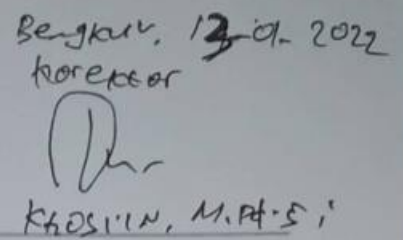 Bengkulu, 13-01-2022
Korektor
Khosi'in, M.Pd.Si